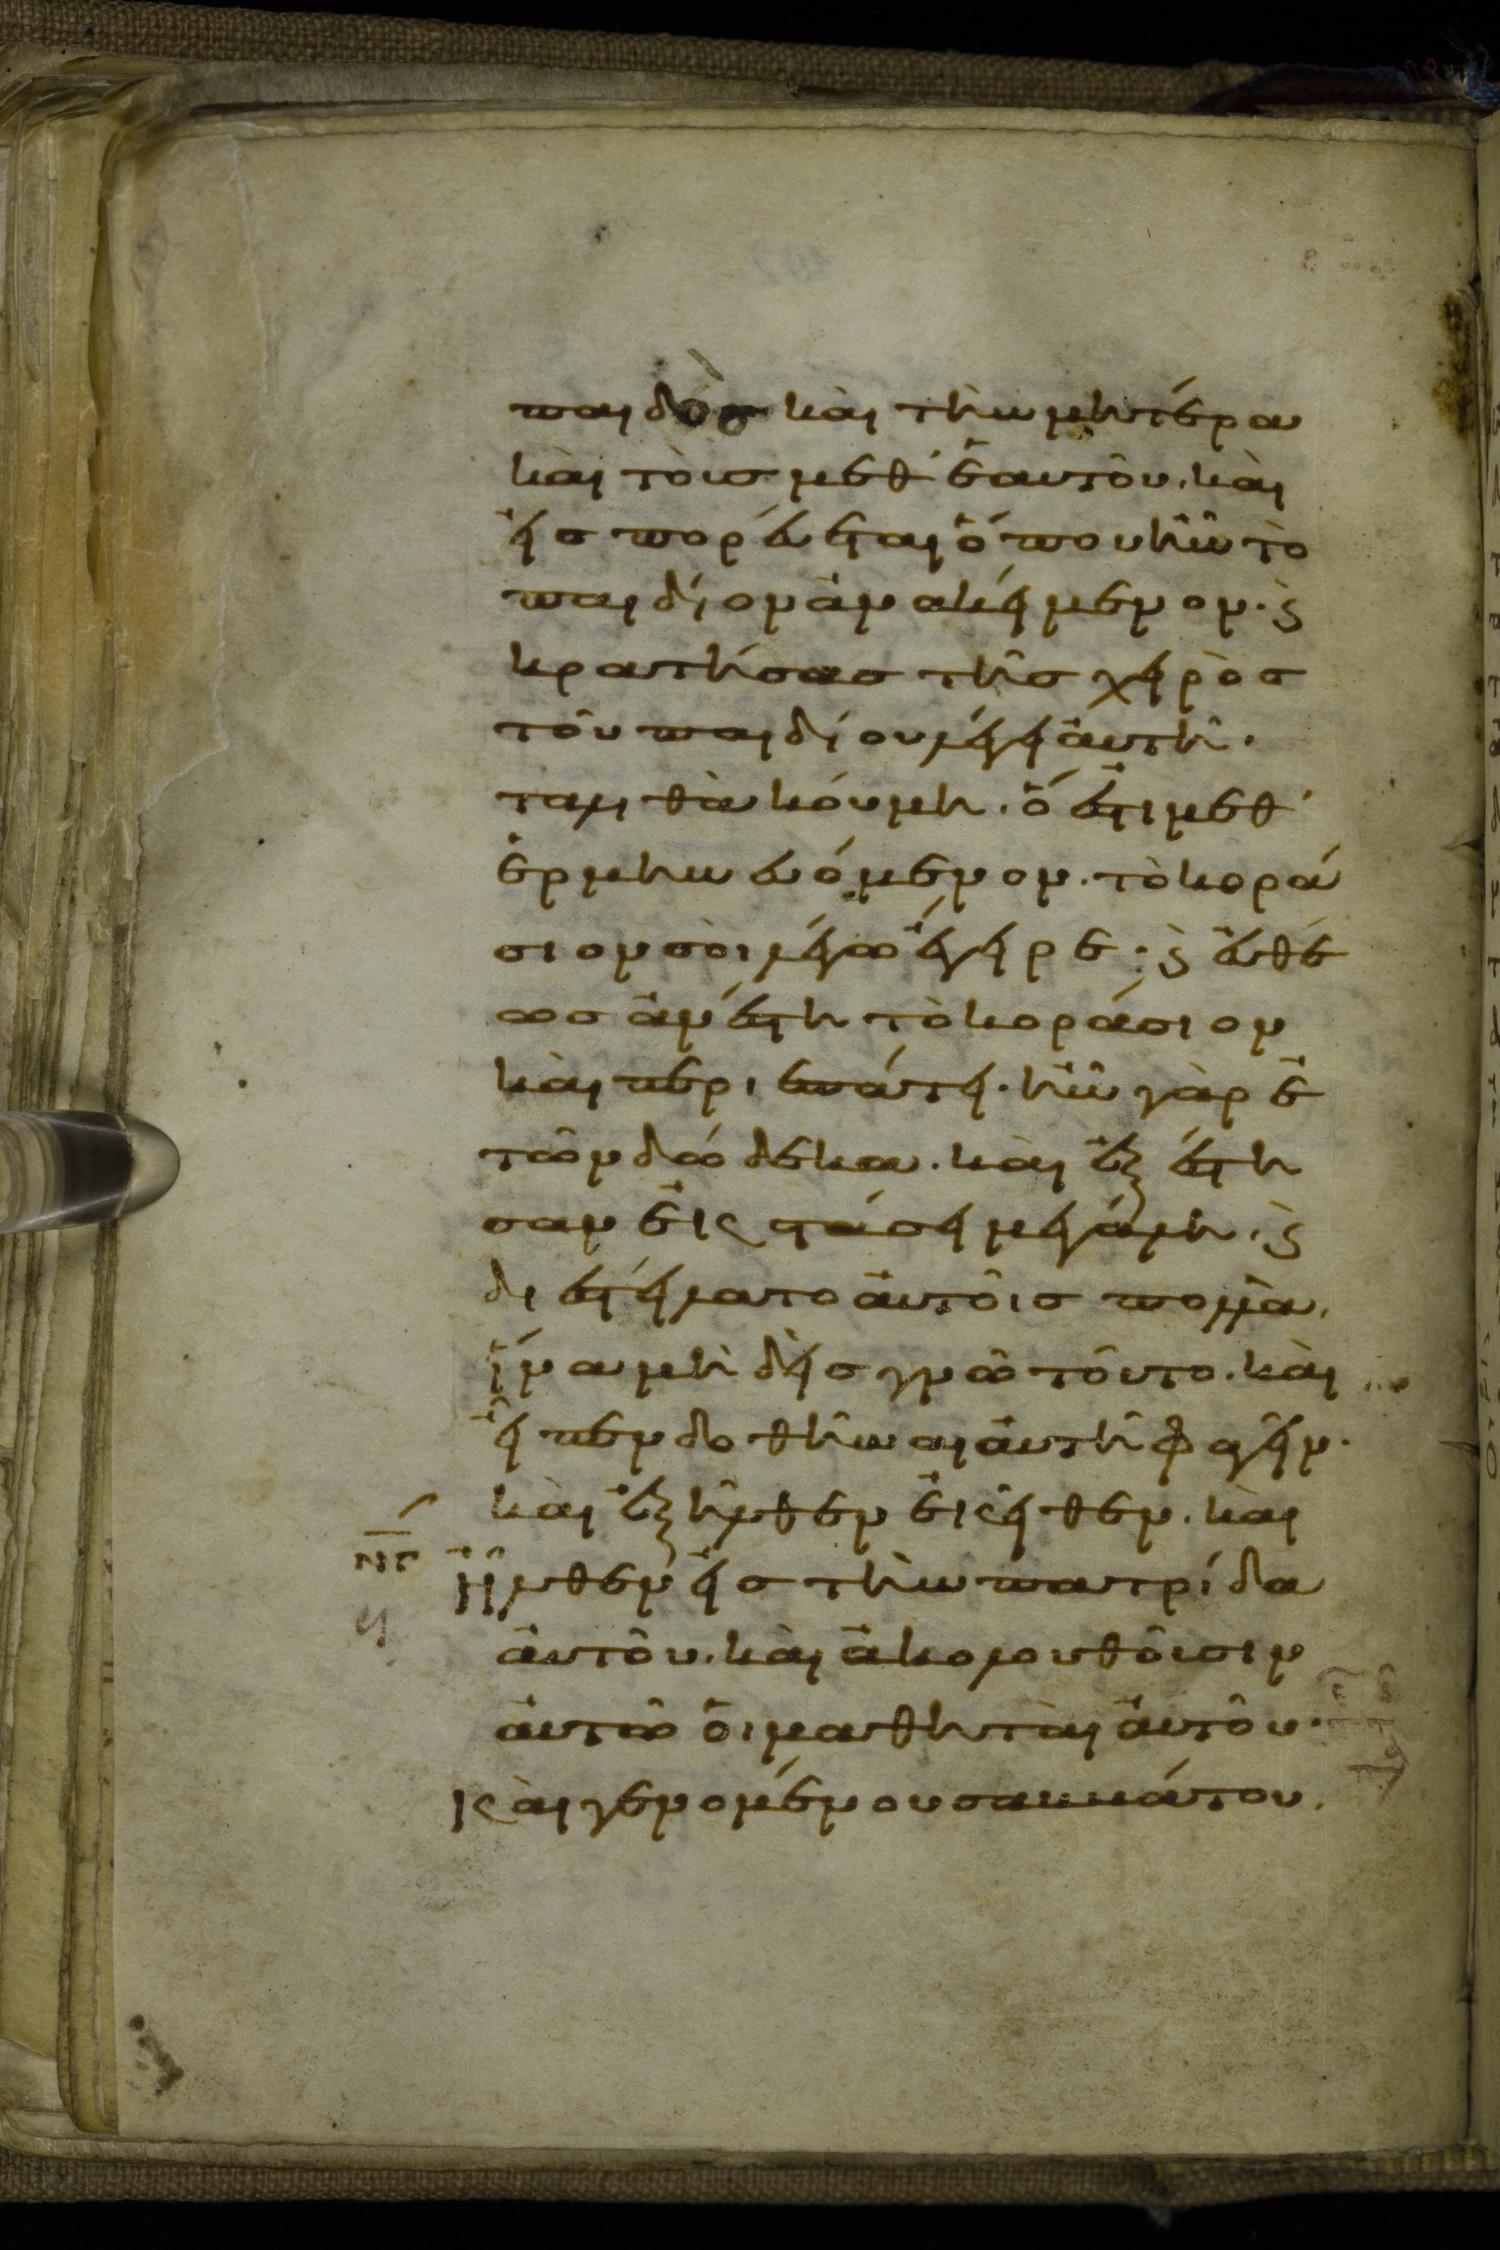 παιδὸσ καὶ τὴν μητέρα
καὶ τοὺσ μεθ' ἑαυτοῦ. καὶ
εἰσπορεύεται ὅπου ἦν τὸ
παιδίον ἀνακείμενον. ϗ
κρατήσασ τῆσ χειρὸσ
τοῦ παιδίου λέγει αὐτῆ.
ταλιθὰ κούμη. ὅ ἐστι μεθ
ἑρμηνευόμενον. τὸ κορά
σιον σοὶ λέγω ἔγειρε. ϗ εὐθέ
ωσ ἀνέστη τὸ κοράσιον
καὶ περιεπάτει. ἦν γὰρ ἐ
τῶν δώδεκα. καὶ ἐξέστη
σαν ἐκστάσει μεγάλη. ϗ
διεστείλατο αὐτοῖσ πολλὰ.
ἵνα μηδεὶσ γνῶ τοῦτο. καὶ
εἶπεν δοθῆναι αὐτῆ φαγεῖν.
καὶ ἐξῆλθεν ἐκεῖθεν. καὶ
ἦλθεν εἰσ τὴν πατρίδα
αὐτοῦ. καὶ ἀκολουθοῦσιν
αὐτῶ οἱ μαθηταὶ αὐτοῦ.
καὶ γενομένου σαββάτου.